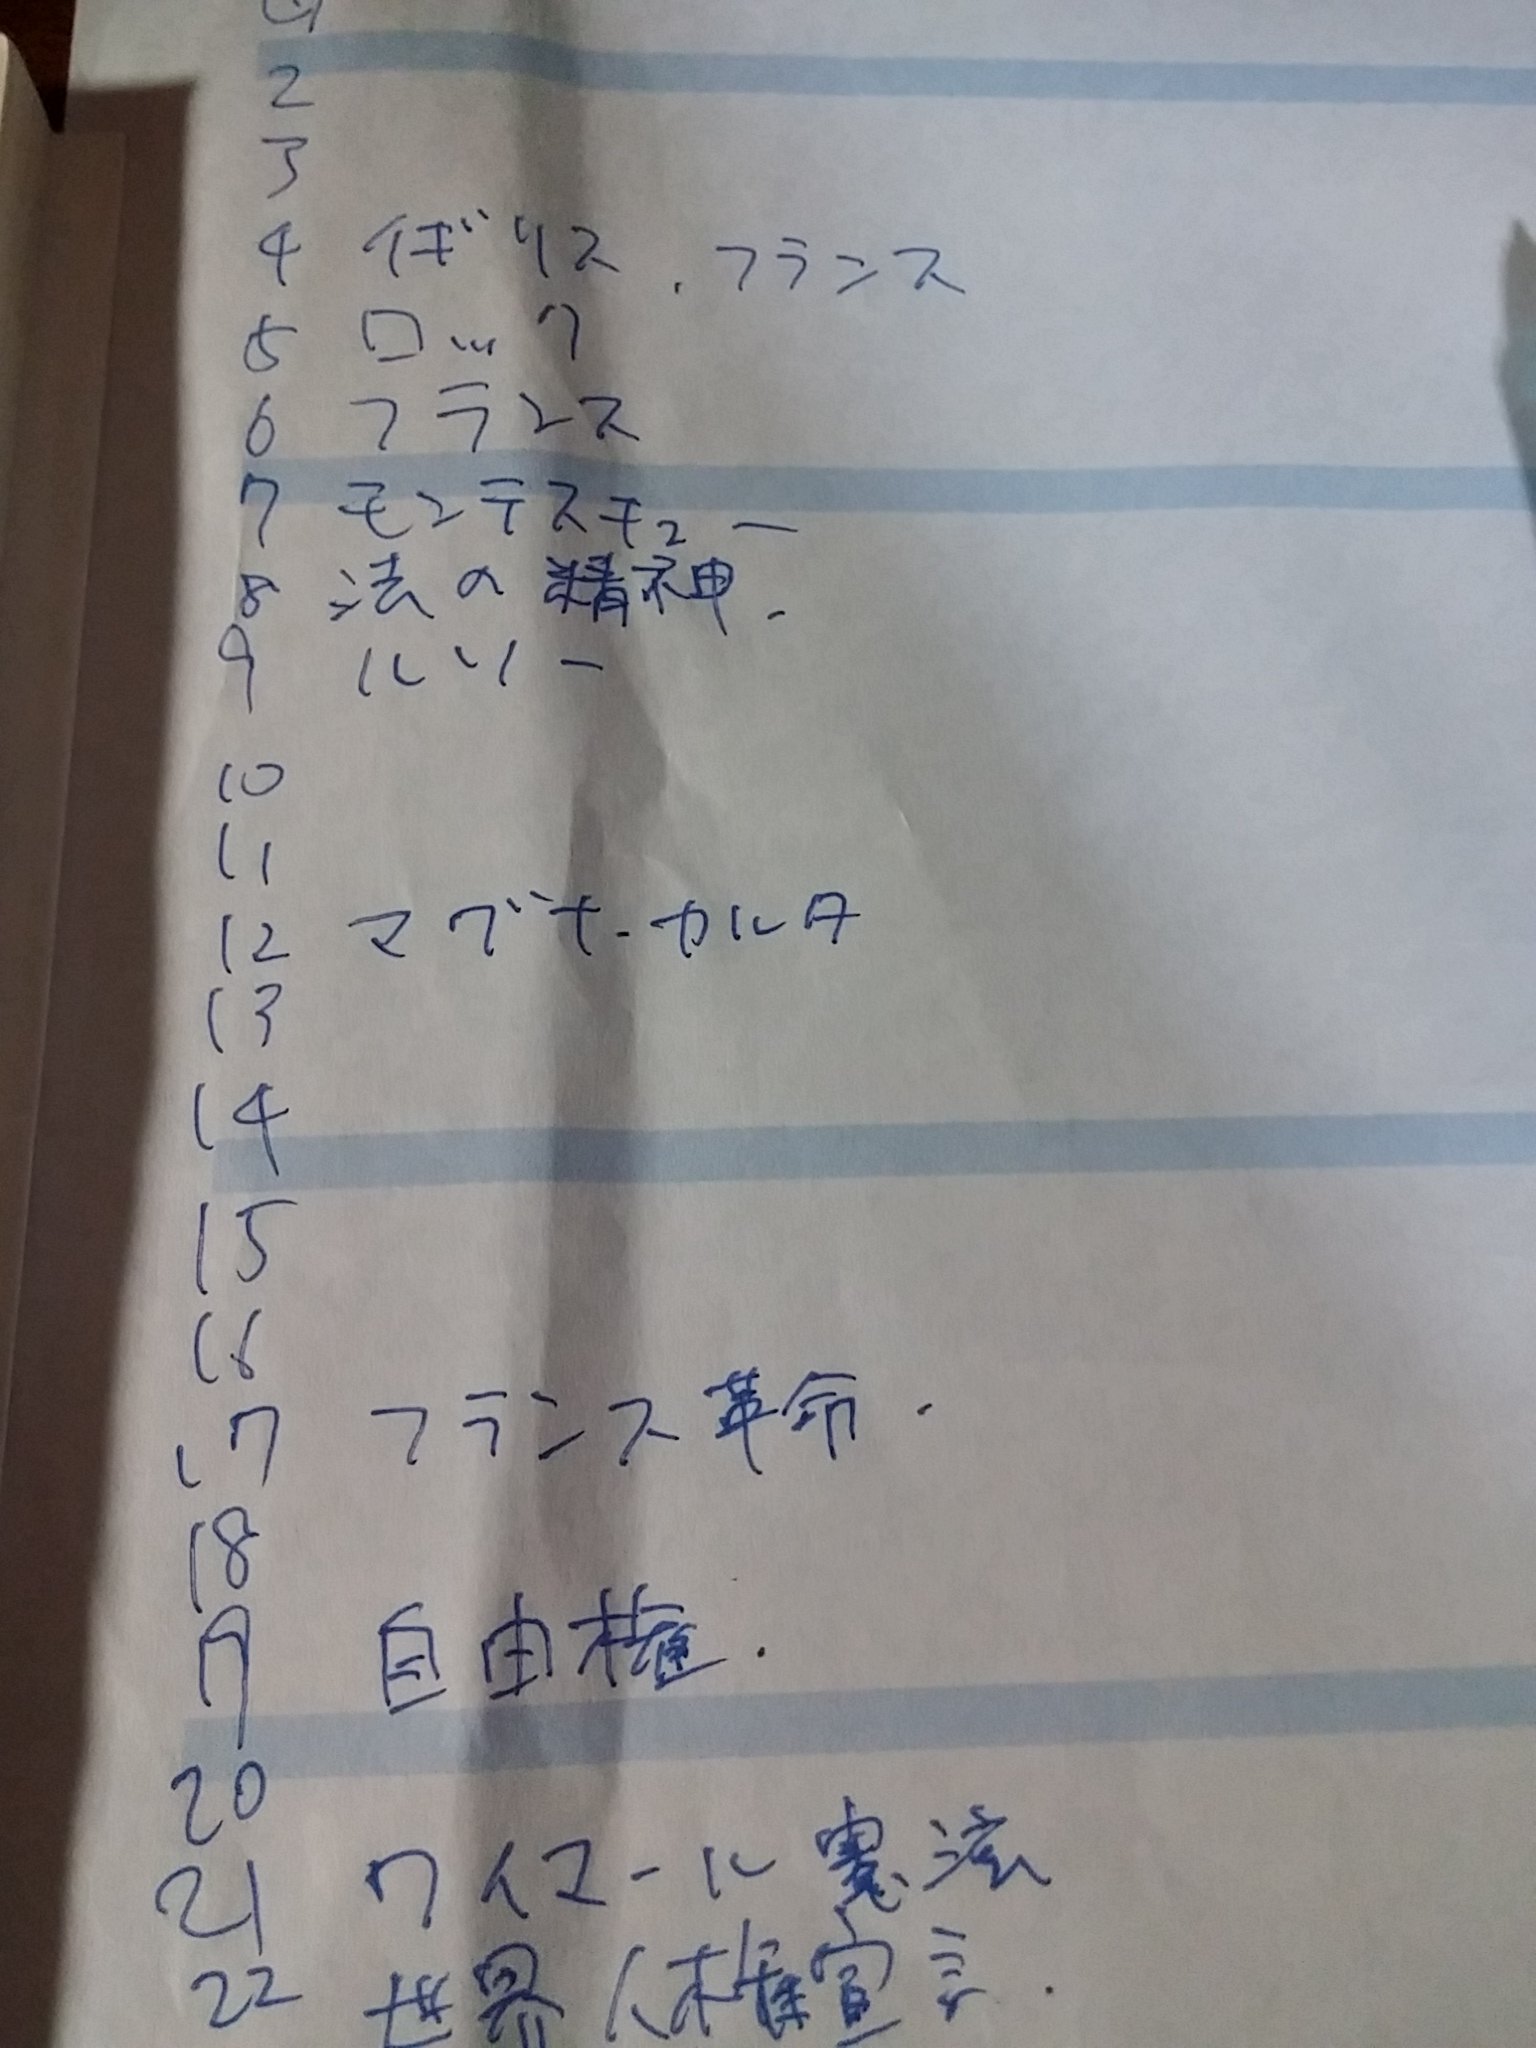 2
3
4 イギリス.フランス
5 ロック
6 フランス
7 モンテスキュー
8 法の精神.
9 ルソー
10
11
12 マグナ.カルタ
13
14
15
16
17 フランス革命.
18
19 自由権.
20
21 ワイマール憲法
22 世界人権宣言.